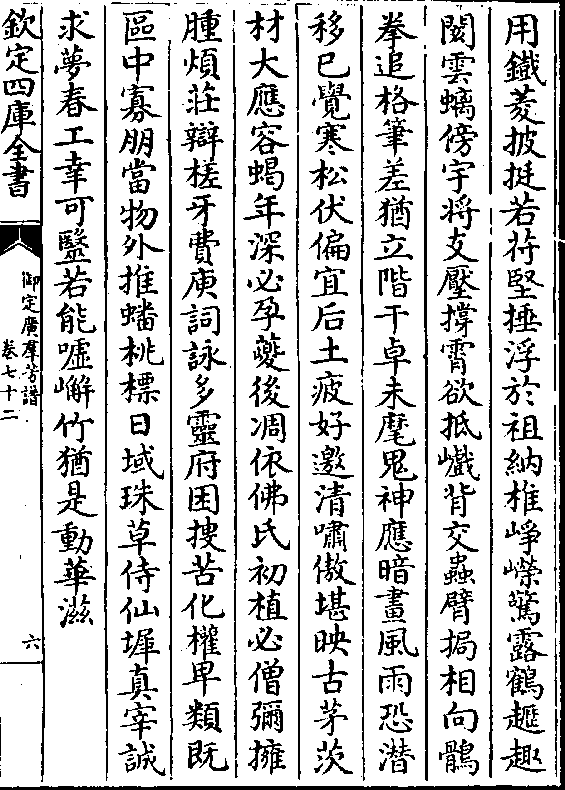 用鐵菱披挺若符堅捶浮於祖納椎崢嶸驚露鶴趦趣
閡雲螭傍宇將支壓撐霄欲抵巇背交蟲臂挶相向鶻
拳追格筆差猶立階干卓未麾鬼神應暗畫風雨恐潛
移已覺寒松伏偏宜后土疲好邀清嘯傲堪映古茅茨
材大應容蝎年深必孕夔後凋依佛氏初植必僧彌擁
腫煩莊辯槎牙費庾詞詠多靈府困搜苦化權卑類既
區中寡朋當物外推蟠桃標日域珠草侍仙墀真宰誠
求夢春工幸可醫若能噓嶰竹猶是動華滋
欽定四庫全書
御定廣羣芳譜
卷七十二
六